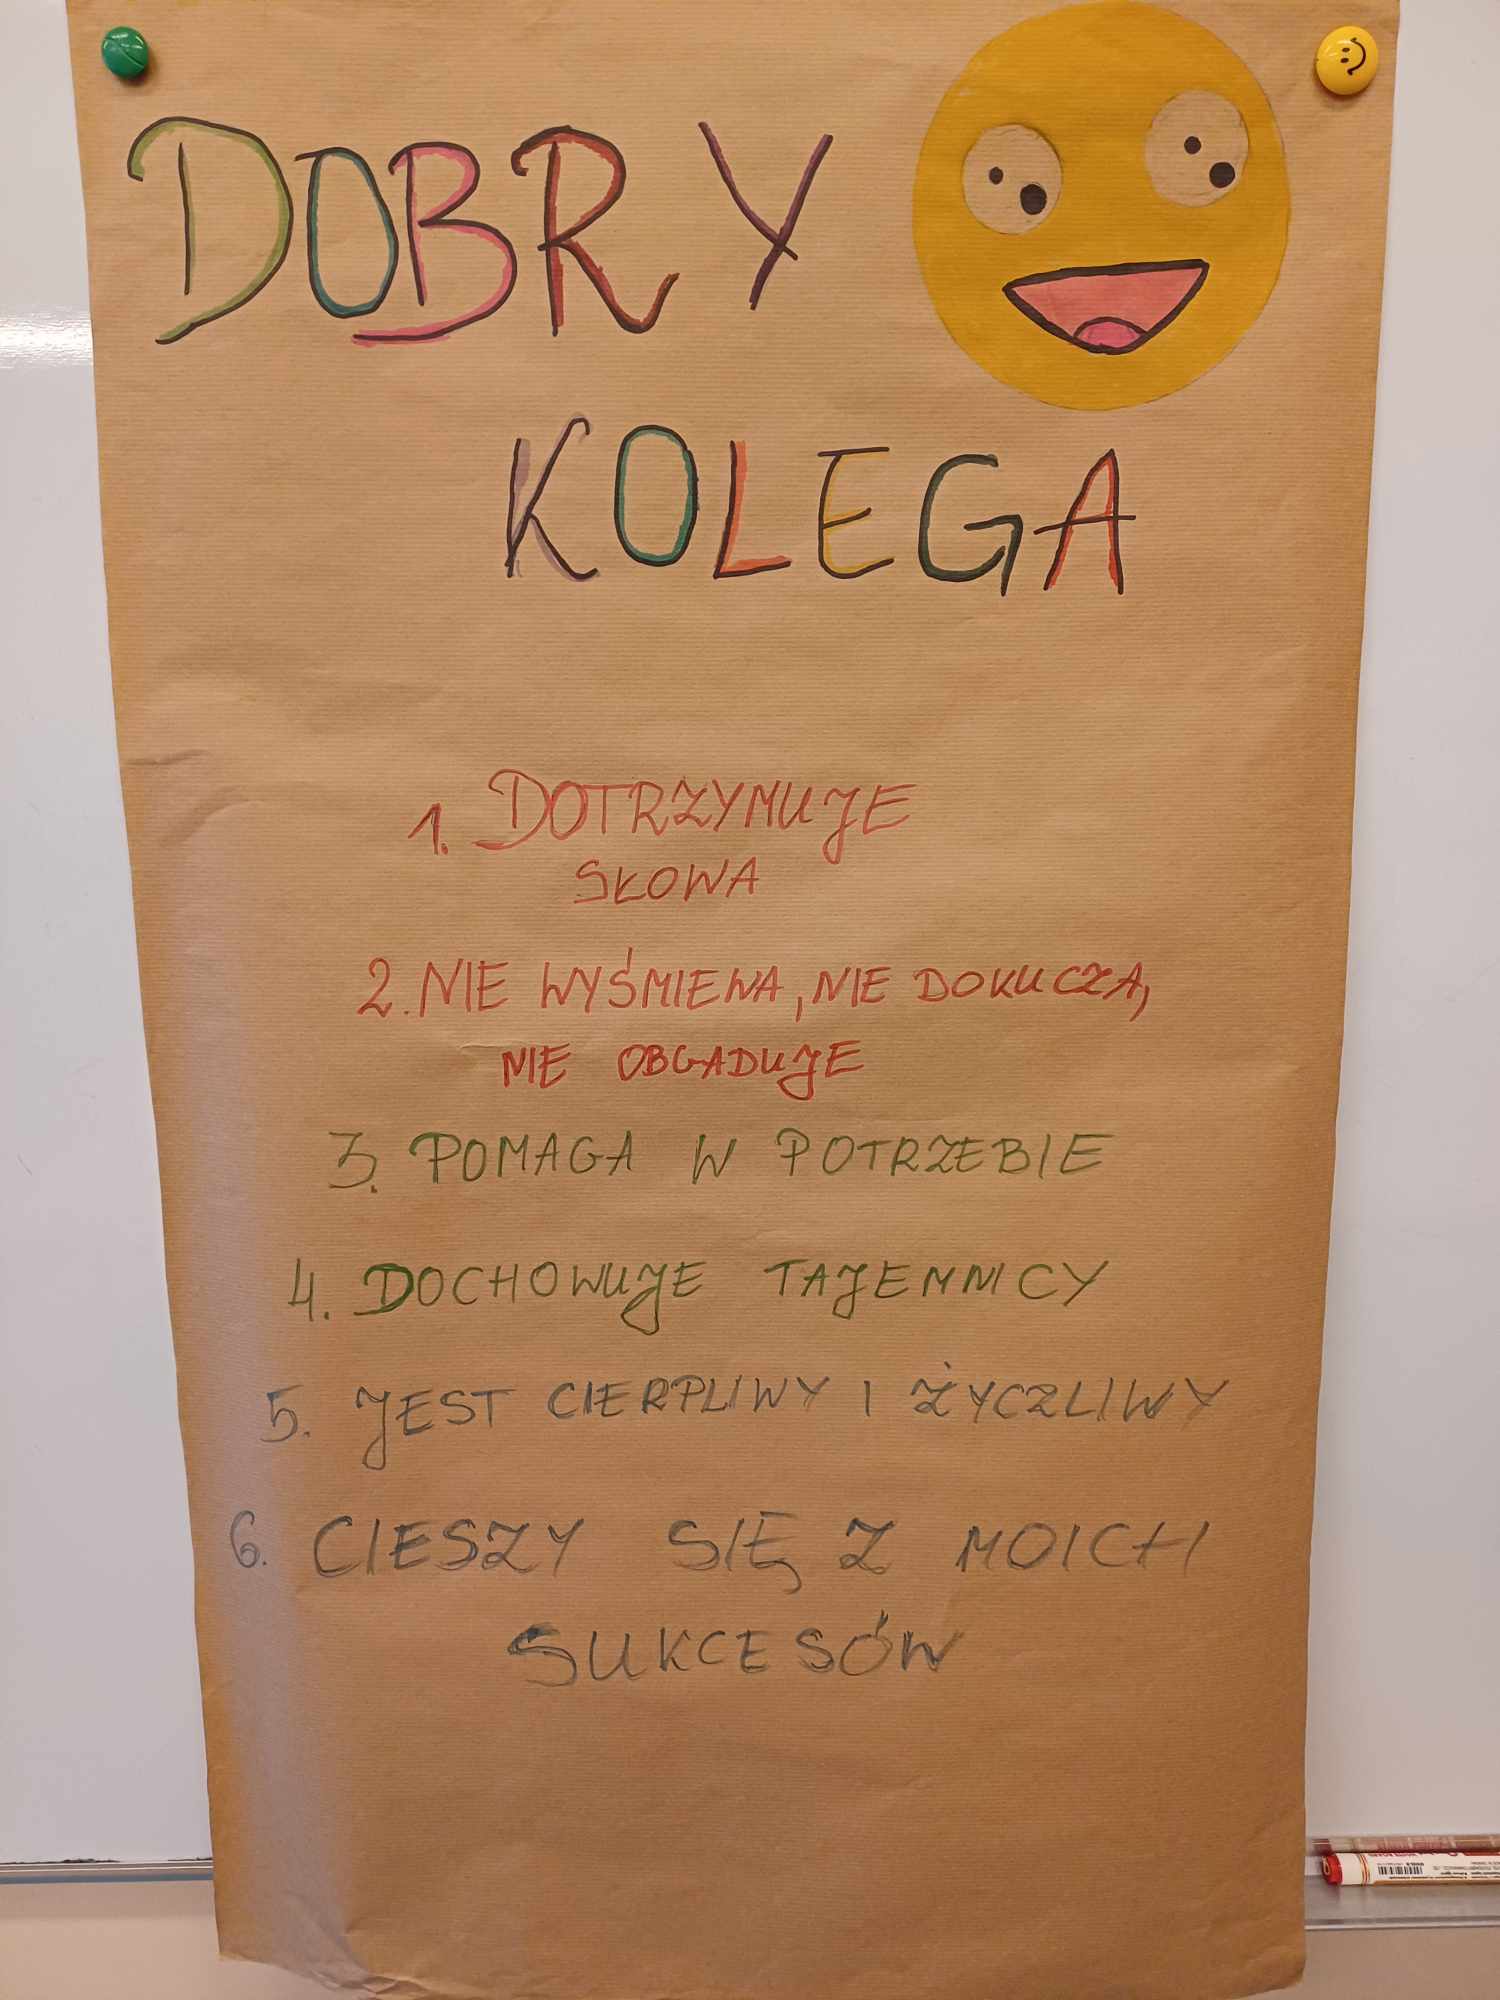 DOBRY
KOLEGA
1. DOTRZYMUJE
SŁOWA
2. NIE WYŚMIEWA, NIE DOKUCZA,
NIE OBGADUJE
3. POMAGA W POTRZEBIE
4. DOCHOWUJE TAJEMNICY
5. JEST CIERPLIWY I ŻYCZLIWY
6. CIESZY SIĘ Z MOICH
SUKCESÓW